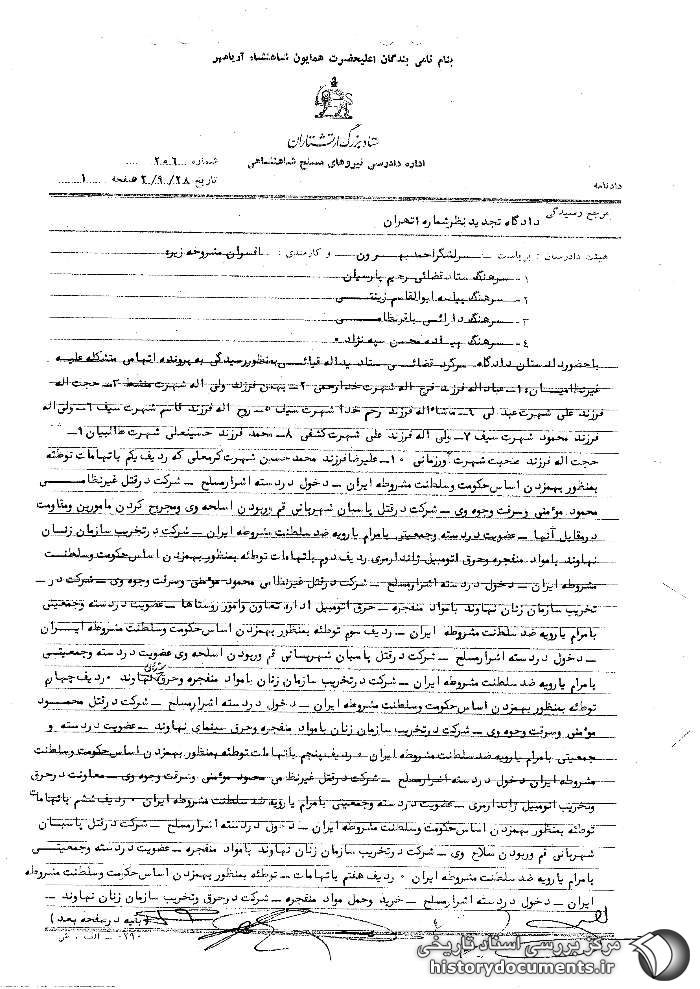 بنام نامی بندگان اعلیحضرت همایون شاهنشاه آریامهر
ستاد بزرگ ارتشتاران
اداره دادرسی نیروهای مسلح شاهنشاهی
شماره ۲۰۶
دادنامه
تاریخ ۲/۹/۲۸ صفحه ۱
مرجع رسیدگی دادگاه تجدید نظر شماره ۱ تهران
هیئت دادرسان : بریاست سرلشگر احمد بهرون و کارمندی : افسران مشروحه زیر
۱ـ سرهنگ ستاد قضائی رحیم پارسیان
۲ـ سرهنگ پیاده ابوالقاسم زینتی
۳ـ سرهنگ دارائی باقر نظامی
۴ـ سرهنگ پیاده محسن سپه نژاد
با حضور دادستان دادگاه سرگرد قضائی ستاد یداله قیائی بمنظور رسیدگی به پرونده اتهامی متشکله علیه
غیرنظامیان ۱ـ عباداله فرزند فرج اله شهرت خدارحمی ۲ـ بهمن فرزند ولی اله شهرت منشط ۳ـ حجت اله
فرزند علی شهرت عبدلی ۴ـ ماشاءاله فرزند رحم خدا شهرت سیف ۵ـ روح اله فرزند قاسم شهرت سیف ۶ـ ولی اله
فرزند محمود شهرت سیف ۷ـ ولی اله فرزند علی شهرت کشفی ۸ـ محمد فرزند حسینعلی شهرت طالبیان ۹ـ
حجت اله فرزند صحبت شهرت آورزمانی ۱۰ـ علیرضا فرزند محمد حسین شهرت کرمعلی که ردیف یکم باتهامات توطئه
بمنظور بهمزدن اساس حکومت و سلطنت مشروطه ایران ـ دخول در دسته اشرار مسلح ـ شرکت در قتل غیرنظامی
محمود مومنی و سرقت وجوه وی ـ شرکت در قتل پاسبان شهربانی قم و ربودن اسلحه وی و مجروح کردن مامورین و مقاومت
در مقابل آنها ـ عضویت در دسته و جمعیتی با مرام یا رویه ضد سلطنت مشروطه ایران ـ شرکت در تخریب سازمان زنان
نهاوند با مواد منفجره و حرق اتومبیل ژاندارمری ردیف دوم باتهامات توطئه بمنظور بهمزدن اساس حکومت و سلطنت
مشروطه ایران ـ دخول در دسته اشرار مسلح ـ شرکت در قتل غیرنظامی محمود مومنی و سرقت وجوه وی ـ شرکت در ـ
تخریب سازمان زنان نهاوند با مواد منفجره ـ حرق اتومبیل اداره تعاون و امور روستاها ـ عضویت در دسته و جمعیتی
با مرام یا رویه ضد سلطنت مشروطه ایران ـ ردیف سوم توطئه بمنظور بهمزدن اساس حکومت و سلطنت مشروطه ایران
ـ دخول در دسته اشرار مسلح ـ شرکت در قتل پاسبان شهربانی قم و ربودن اسلحه وی عضویت در دسته و جمعیتی
با مرام یا رویه ضد سلطنت مشروطه ایران ـ شرکت در تخریب سازمان زنان با مواد منفجره و حرق نهاوند ۰ ردیف چهارم
توطئه بمنظور بهمزدن اساس حکومت و سلطنت مشروطه ایران ـ دخول در دسته اشرار مسلح ـ شرکت در قتل محمود
مومنی و سرقت وجوه وی ـ شرکت در تخریب سازمان زنان با مواد منفجره و حرق سینمای نهاوند ـ عضویت در دسته و
جمعیتی با مرام یا رویه ضد سلطنت مشروطه ایران ۰ ردیف پنجم باتهامات توطئه بمنظور بهمزدن اساس حکومت و سلطنت
مشروطه ایران دخول در دسته اشرار مسلح ـ شرکت در قتل غیرنظامی محمود مومنی و سرقت وجوه وی ـ معاونت در حرق
و تخریب اتومبیل ژاندارمری ـ عضویت در دسته و جمعیتی با مرام یا رویه ضد سلطنت مشروطه ایران ۰ ردیف ششم باتهامات
توطئه بمنظور بهمزدن اساس حکومت و سلطنت مشروطه ایران ـ دخول در دسته اشرار مسلح ـ شرکت در قتل پاسبان
شهربانی قم و ربودن سلاح وی ـ شرکت در تخریب سازمان زنان نهاوند با مواد منفجره ـ عضویت در دسته و جمعیتی
با مرام یا رویه ضد سلطنت مشروطه ایران ۰ ردیف هفتم باتهامات ـ توطئه بمنظور بهمزدن اساس حکومت و سلطنت مشروطه
ایران ـ دخول در دسته اشرار مسلح ـ خرید و حمل مواد منفجره ـ شرکت در حرق و تخریب سازمان زنان نهاوند ـ
(بقیه در صفحه بعد)
۲۹۰ ـ الف ـ ش
مرکز بررسی اسناد تاریخی
historydocuments.ir